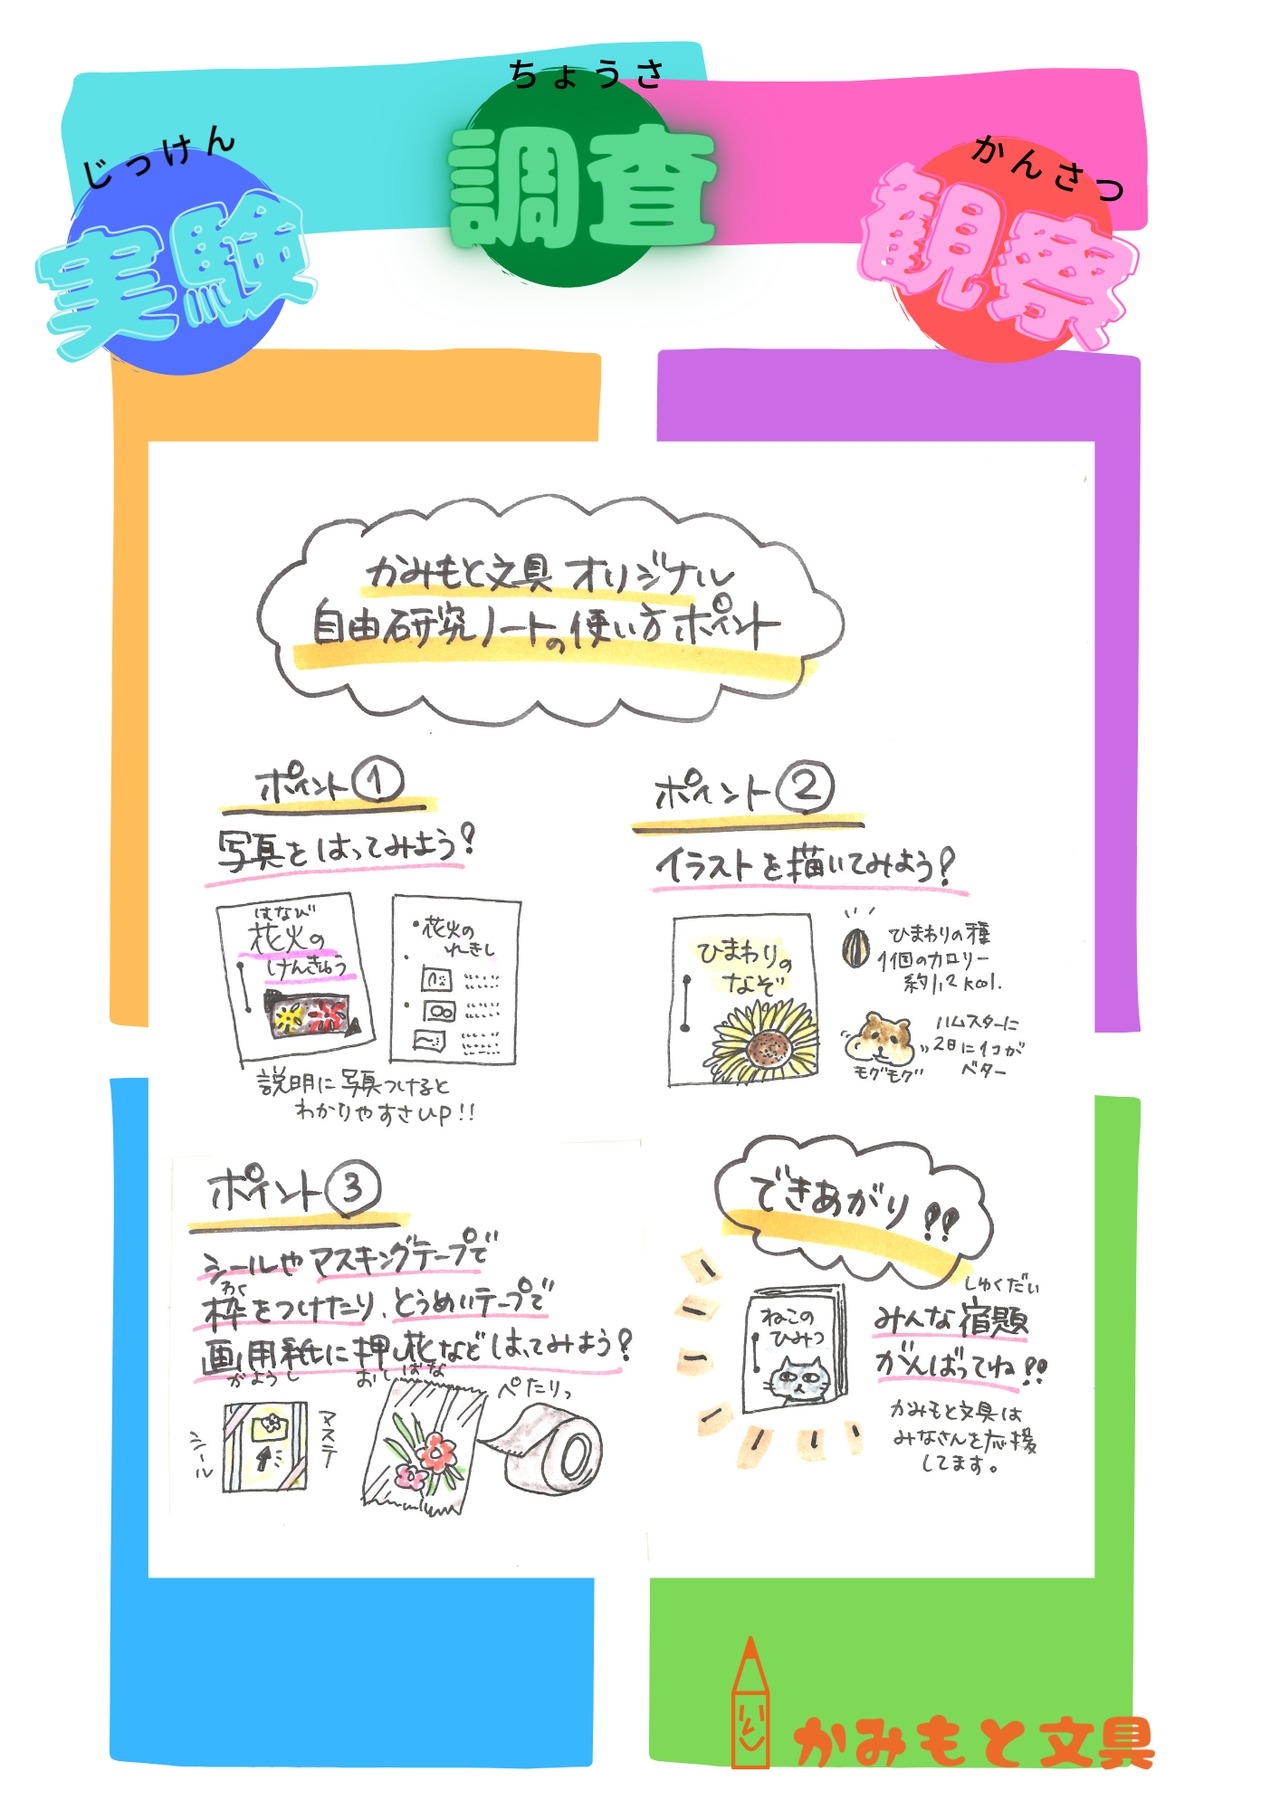 じっけん
実験
ちょうさ
調査
かんさつ
観察
かみもと文具 オリジナル
自由研究ノートの使い方ポイント
ポイント①
写真をはってみよう!
はなび
花火の
けんきゅう
・花火の
れきし
説明に写真つけると
わかりやすさUP!!
ポイント②
イラストを描いてみよう!
ひまわりの
なぞ
ひまわりの種
1個のカロリー
約1,2kcal.
ハムスターに
2日に1コが
ベター
モグモグ
ポイント③
シールやマスキングテープで
わく
枠をつけたり、とうめいテープで
画用紙に押し花などはってみよう!
がようし
おしばな
シール
マステ
ぺたりっ
できあがり!!
ねこの
ひみつ
しゅくだい
みんな宿題
がんばってね!!
かみもと文具は
みなさんを応援
してます。
かみもと文具